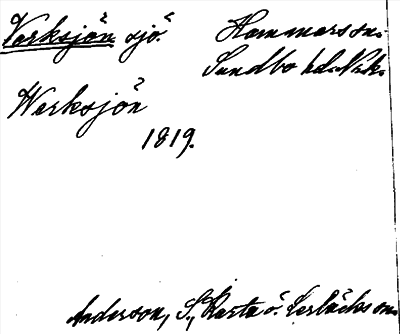 Verksjön sjö.
Hammars sn.
Sundbo hd. Nrk.
Werksjön
1819.
Anderson, S., Karta ö. Lerbäcks sn.